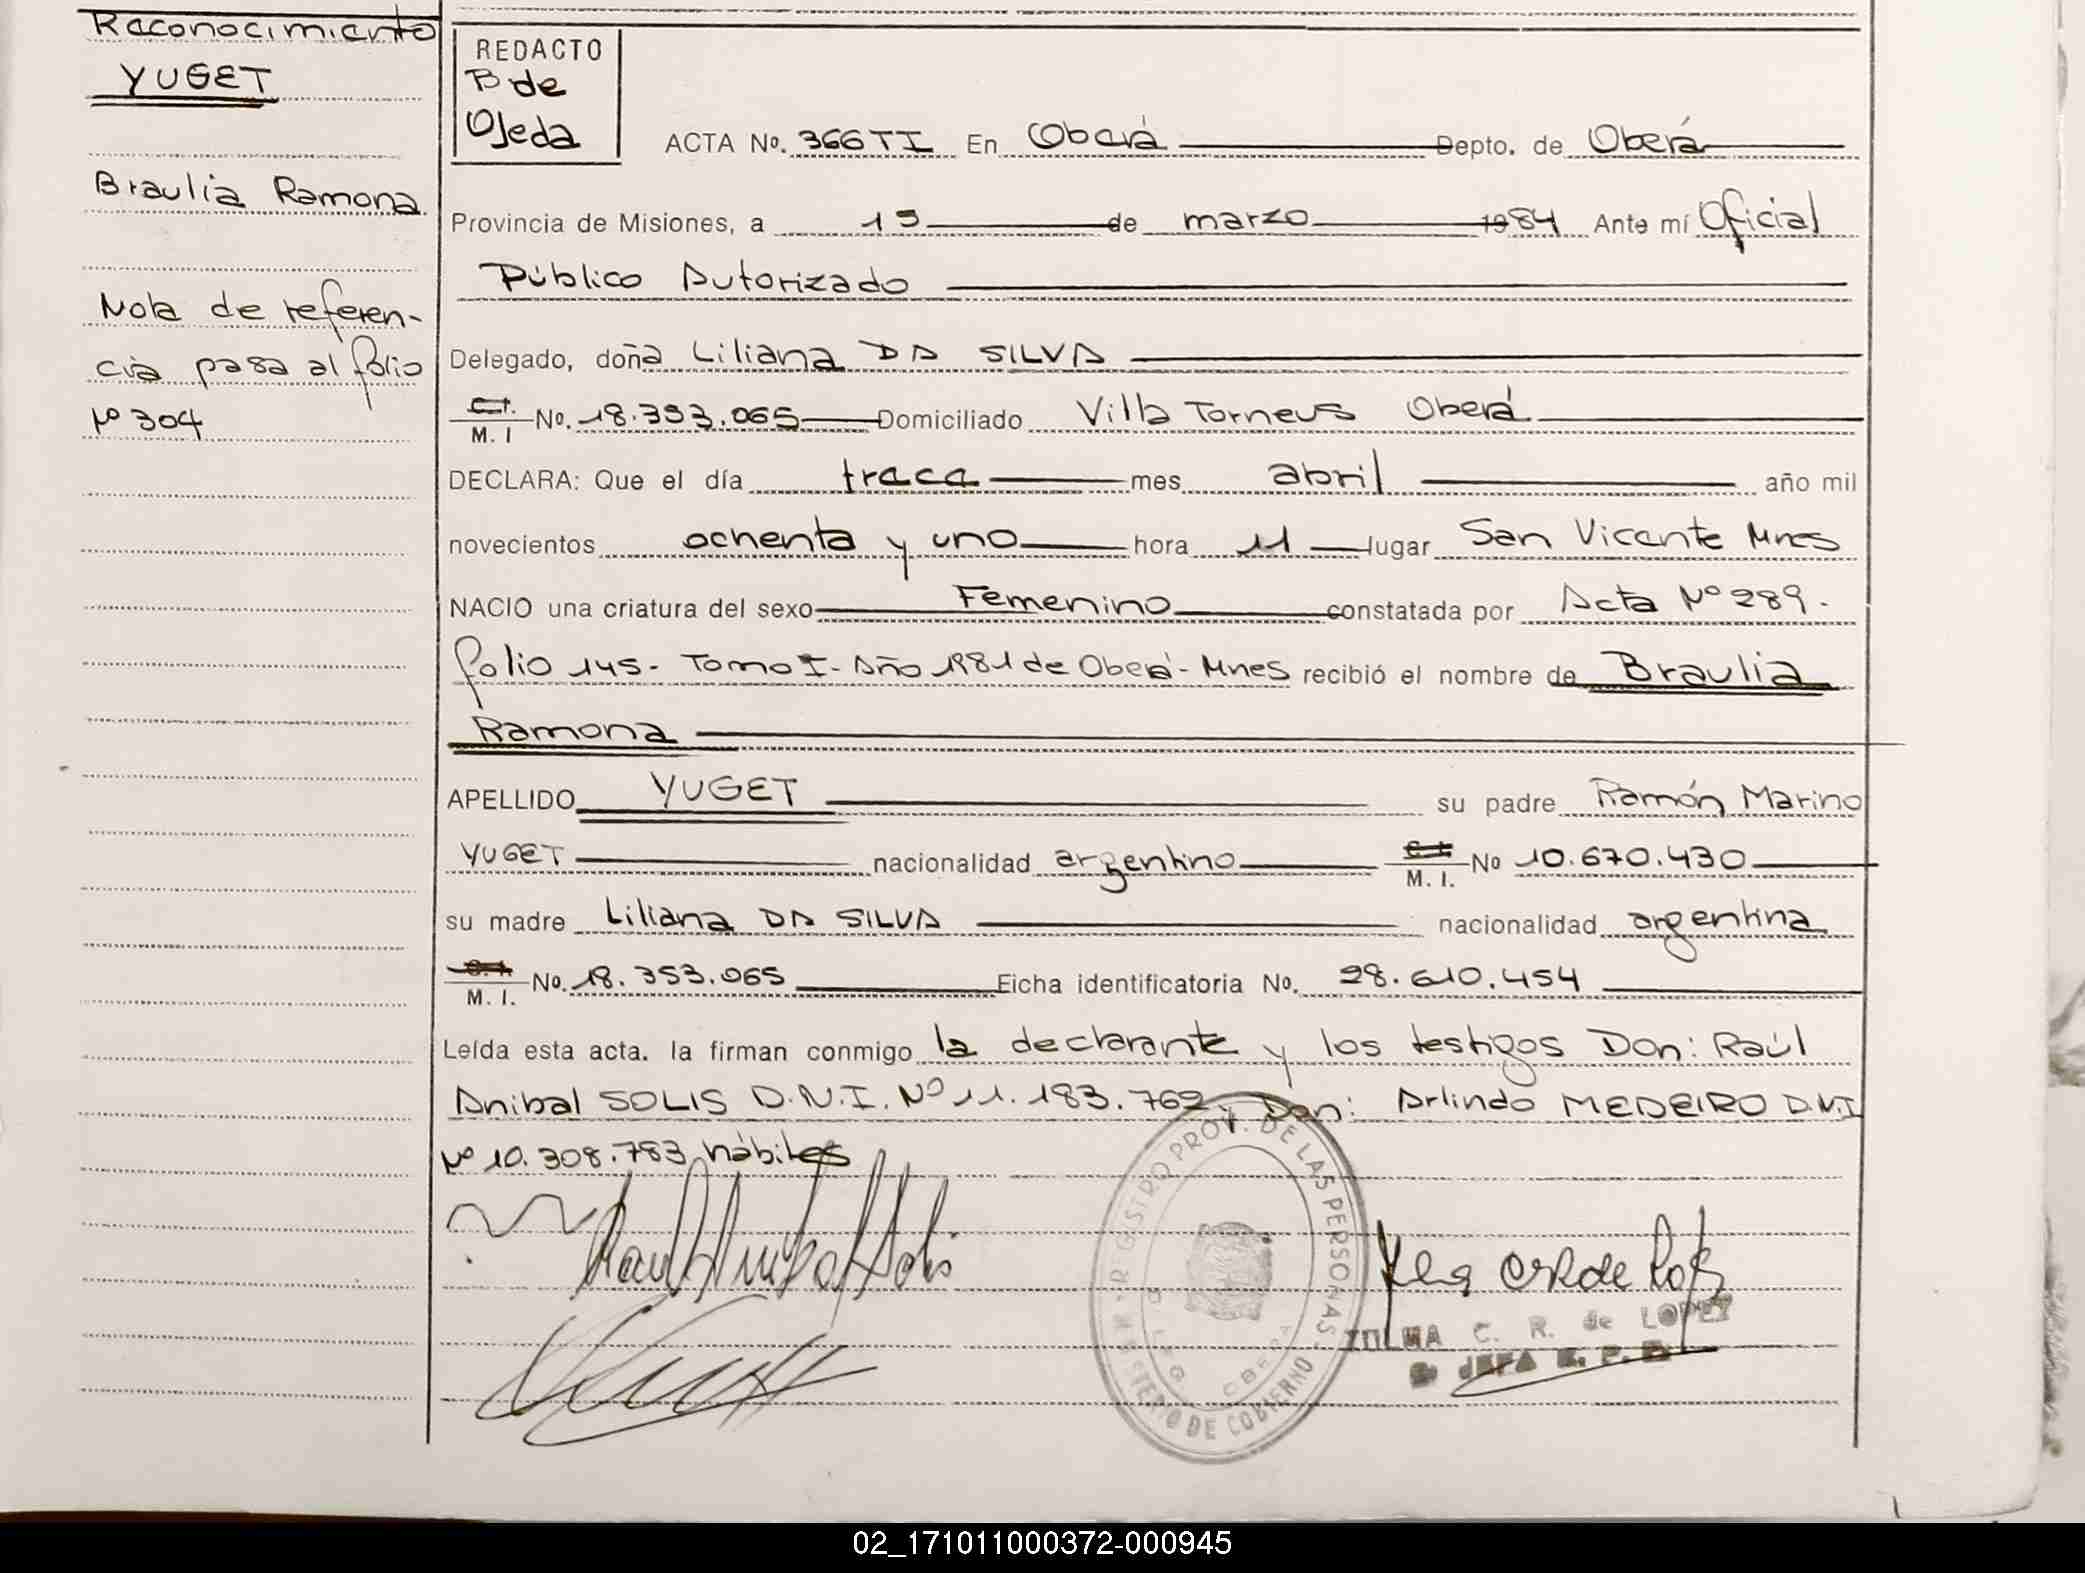 Reconocimiento
YUGET
Braulia Ramona
Nota de referen-
cia pasa al folio
Nº 304
REDACTO
B de
Ojeda
ACTA No. 366 TI En Oberá Depto. de Oberá
Provincia de Misiones, a 19 de marzo 1984 Ante mí Oficial
Público Autorizado
Delegado, doña Liliana DA SILVA
C.I. M. I No. 18.353.065 Domiciliado Villa Torneus Oberá
DECLARA: Que el día trece mes abril año mil
novecientos ochenta y uno hora 11 lugar San Vicente Mnes
NACIO una criatura del sexo Femenino constatada por Acta Nº 289.
folio 145- Tomo I- Año 1981 de Oberá- Mnes recibió el nombre de Braulia
Ramona
APELLIDO YUGET su padre Ramón Marino
YUGET nacionalidad argentino C.I. M. I. No 10.670.430
su madre Liliana DA SILVA nacionalidad argentina
C.I. M. I. No. 18.353.065 Ficha identificatoria No. 28.610.454
Leída esta acta. la firman conmigo la declarante y los testigos Don: Raúl
Anibal SOLIS D.N.I. Nº 11.183.762 y Don: Arlindo MEDEIRO D.N.I
Nº 10.308.783 hábiles
Raul Anibal Solis
REGISTRO PROV. DE LAS PERSONAS
MINISTERIO DE GOBIERNO
OBERA
ZULMA C. R. de LOPEZ
JEFA R. P. P.
02_171011000372-000945